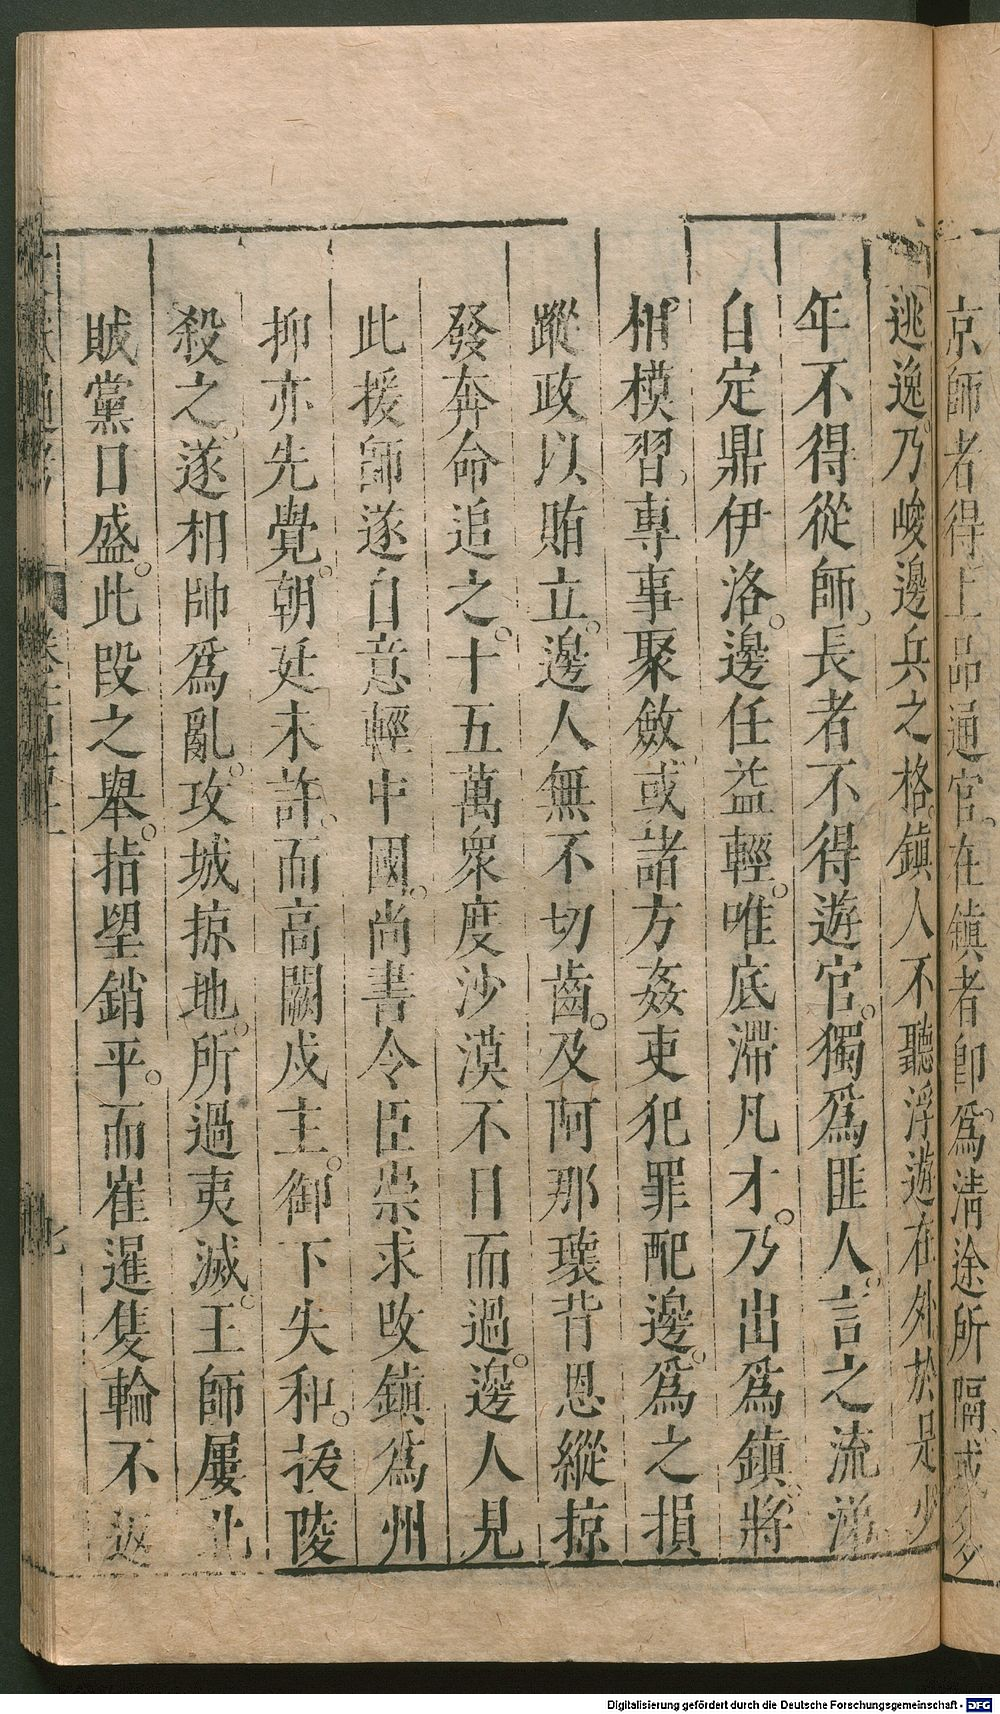 京師者得上品通官。在鎮者卽爲淸途所隔或多
逃逸乃峻邊兵之格。鎮人不聽浮遊在外於是少
年不得從師。長者不得遊官。獨爲匪人。言之流涕
自定鼎伊洛。邊任益輕。唯底滯凡才。乃出爲鎮將
相模習。專事聚斂。或諸方姦吏犯罪配邊。爲之損
蹤政以賄立。邊人無不切齒。及阿那瓌背恩縱掠
發奔命追之。十五萬衆度沙漠不日而過。邊人見
此援師遂自意輕中國。尚書令臣崇求改鎮爲州
抑亦先覺。朝廷未許。而高闕戍主。御下失和。拔陵
殺之。遂相帥爲亂。攻城掠地。所過夷滅。王師屢北
賊黨日盛。此段之舉。指望銷平。而崔暹隻輪不返
Digitalisierung gefördert durch die Deutsche Forschungsgemeinschaft - DFG